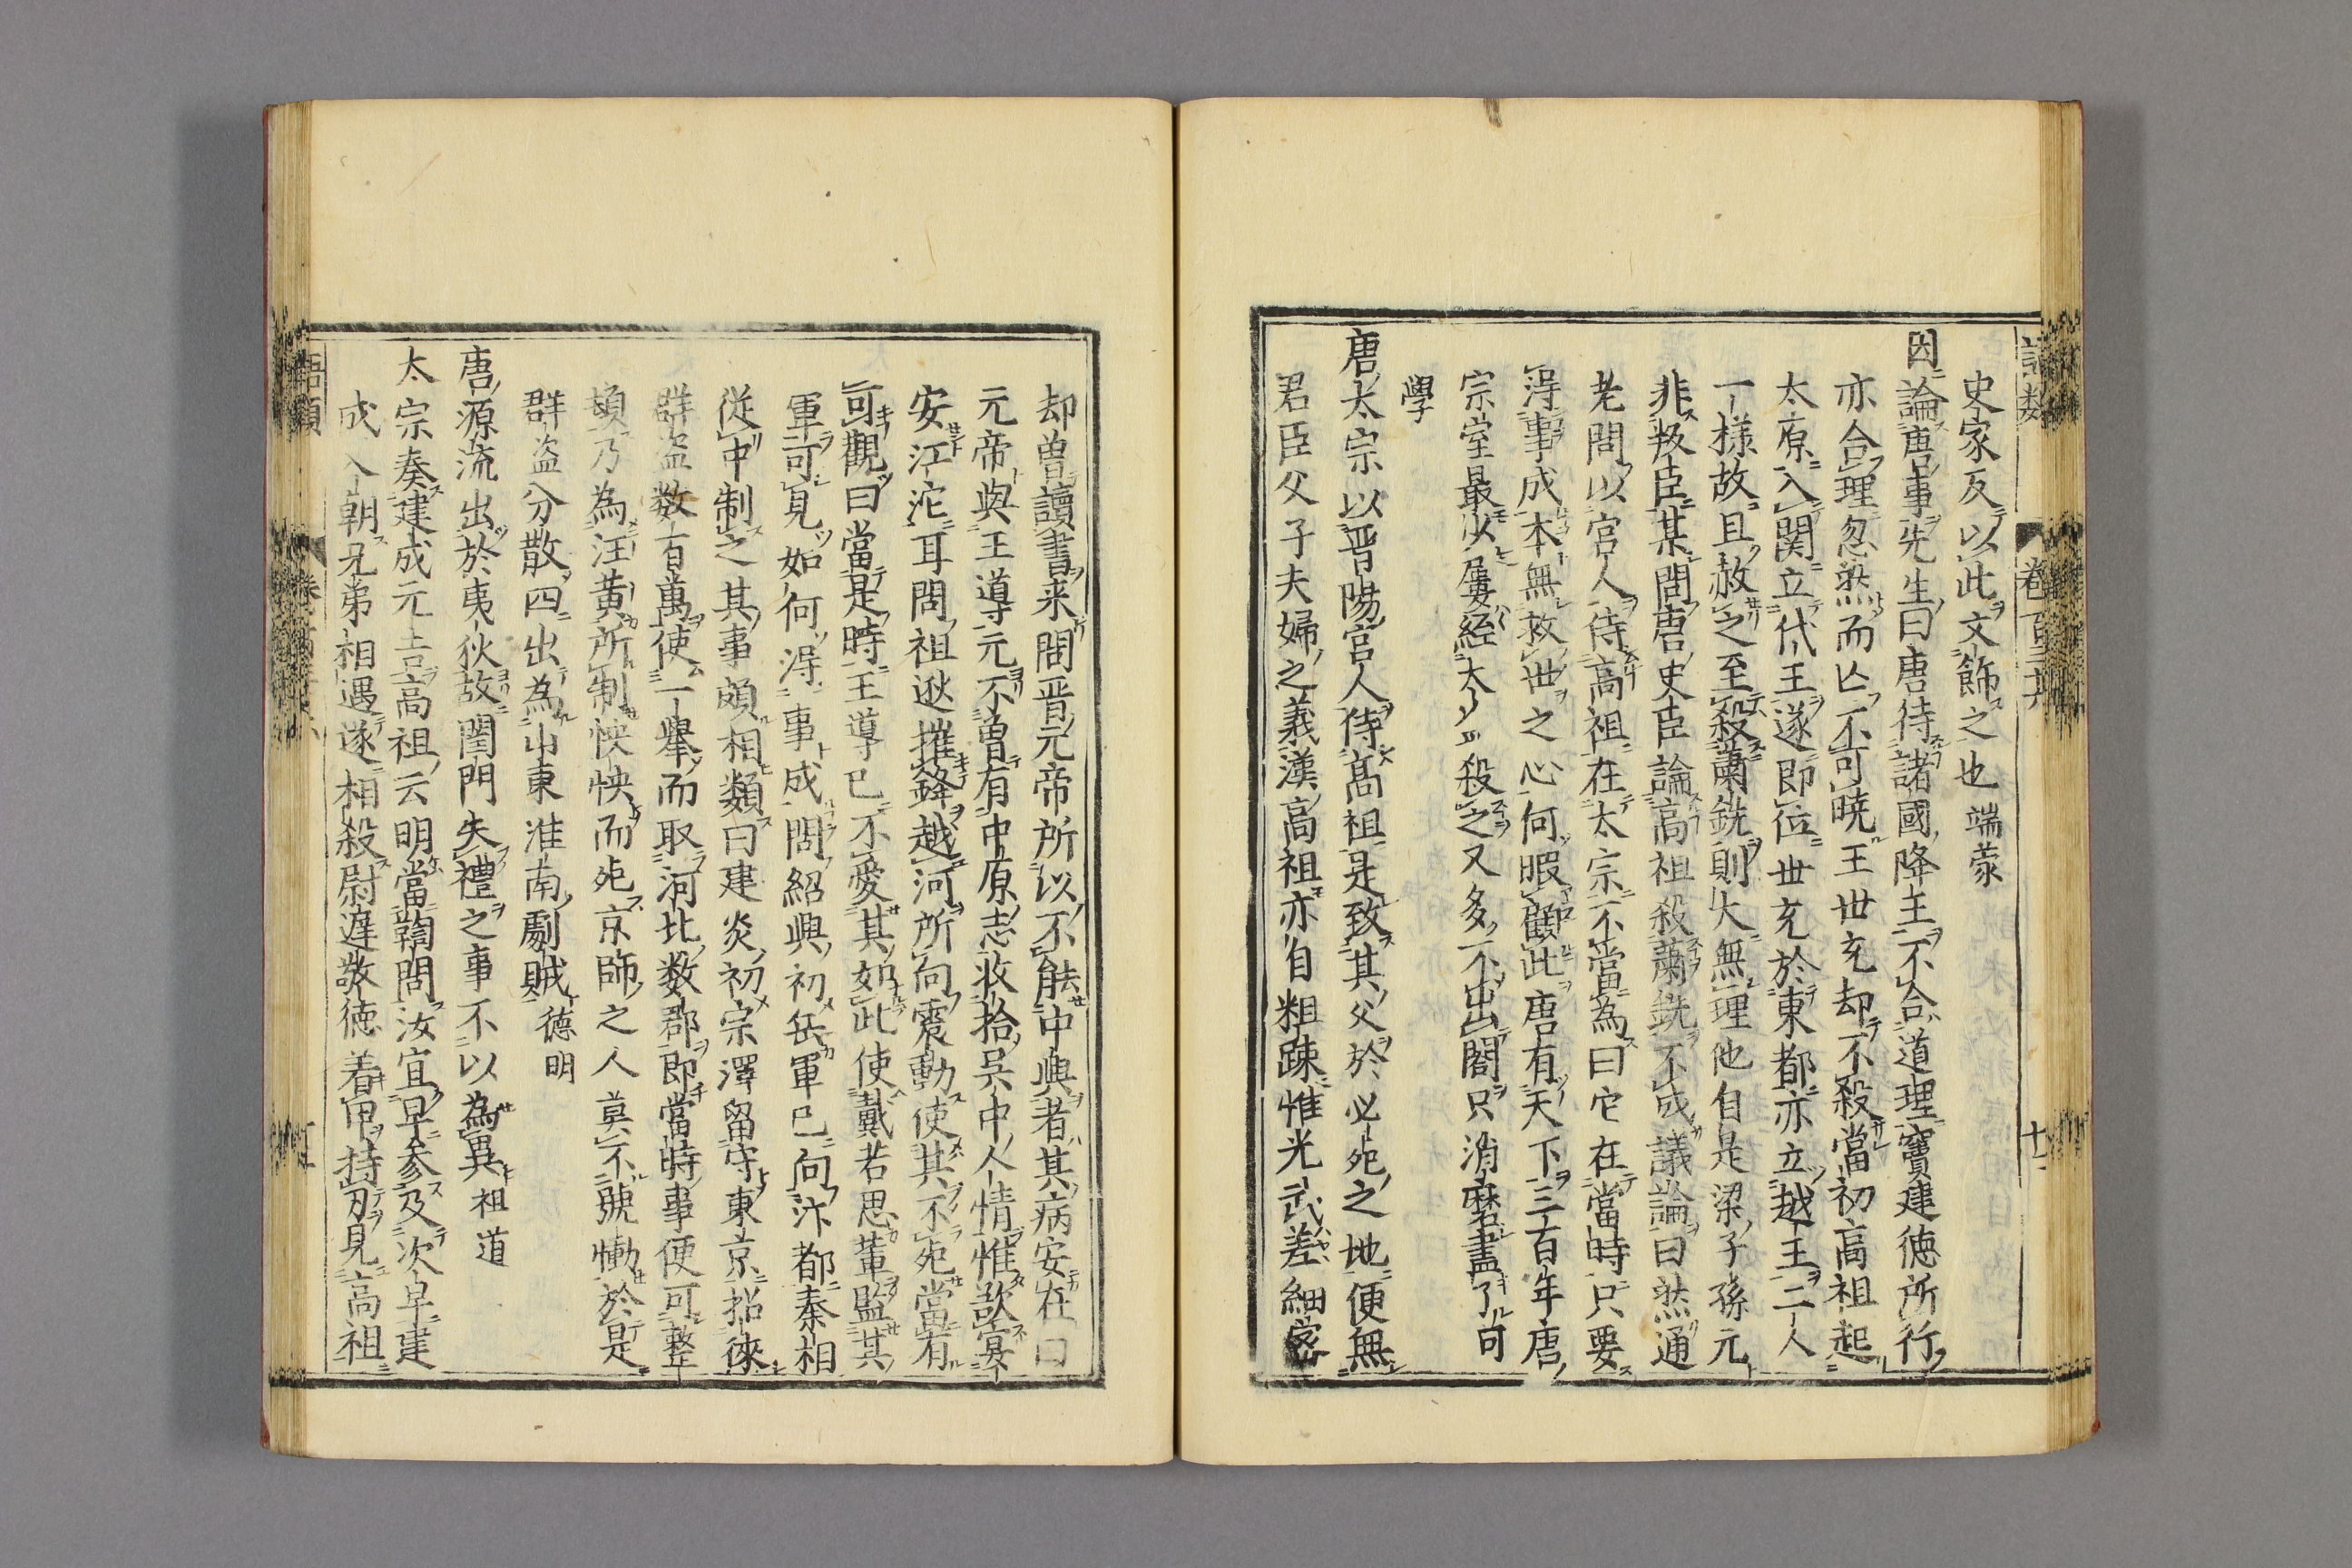 語類 卷百三十六 十一
史家反以此文飾之也 端蒙
因論唐事先生曰唐待諸國降王不合道理竇建徳所行
亦合理忽然而亡不可暁王世充却不殺當初高祖起
太原入関立代王遂即位世充於東都亦立越王二人
一様故且赦之至殺蕭銑則大無理他自是梁子孫元
非叛臣某問唐史臣論高祖殺蕭銑不成議論曰然通
老問以宮人侍高祖在太宗不當為曰它在當時只要
得事成本無救世之心何暇顧此唐有天下三百年唐
宗室最少屢經大乱殺之又多不出閤只消磨盡了可
學
唐太宗以晋陽宮人侍髙祖是致其父於必死之地便無
君臣父子夫婦之義漢高祖亦自粗踈惟光武差細密
却曽讀書来問晋元帝所以不能中興者其病安在曰
元帝與王導元不曽有中原志收拾呉中人情惟欲宴
安江沱耳問祖逖摧鋒越河所向震動使其不死當有
可觀曰當是時王導已不愛其如此使戴若思輩監其
軍可見如何得事成問紹興初岳軍已向汴都秦相
從中制之其事頗相類曰建炎初宗澤留守東京招徠
群盗数百萬使一舉而取河北数郡即當時事便可整
頓乃為汪黄所制怏怏而死京師之人莫不號慟於是
群盗分散四出為山東淮南劇賊 徳明
唐源流出於夷狄故閨門失禮之事不以為異 祖道
太宗奏建成元吉高祖云明當鞫問汝宜早参及次早建
成入朝兄弟相遇遂相殺尉遲敬徳着甲持刃見高祖
語類